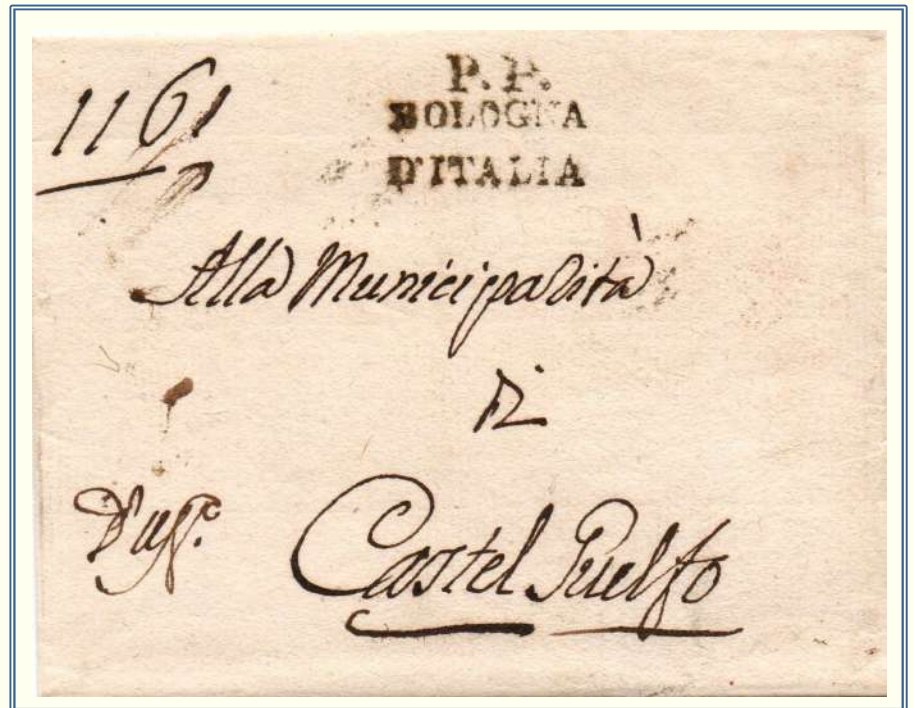 1161
P. P.
BOLOGNA
D'ITALIA
Alla Municipalità
Di
D'uff.º
Castel Guelfo